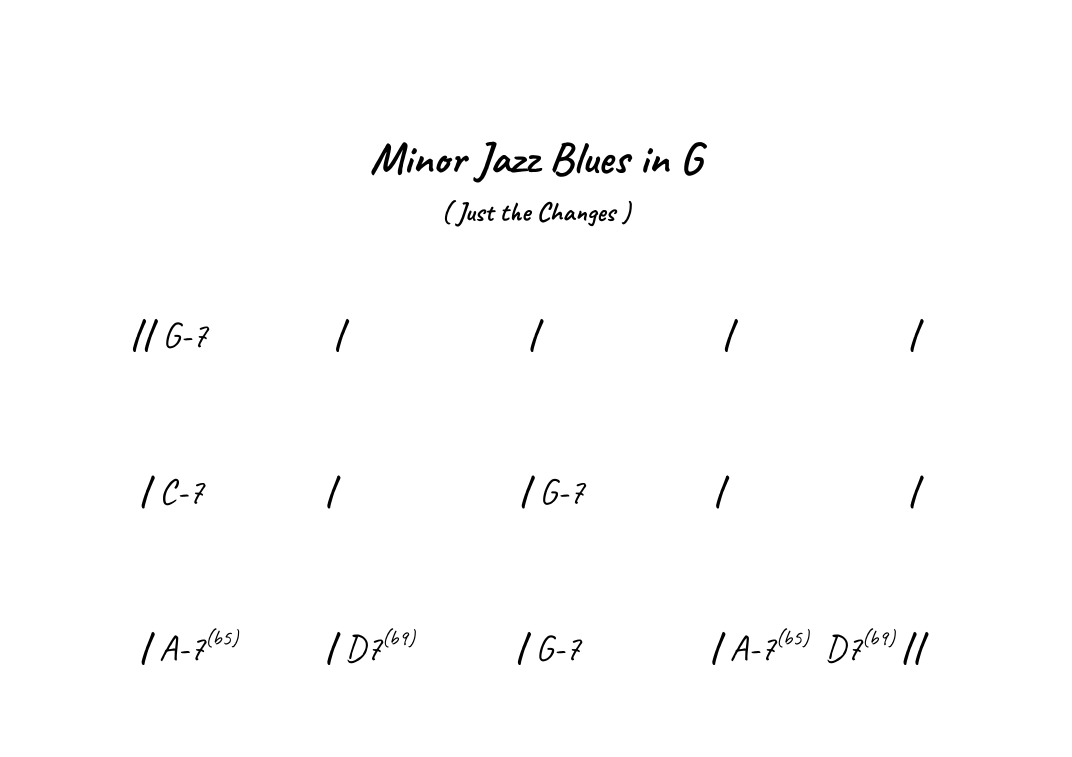 Minor Jazz Blues in G
( Just the Changes )
|| G-7 | | | |
| C-7 | | G-7 | |
| A-7(b5) | D7(b9) | G-7 | A-7(b5) D7(b9) ||